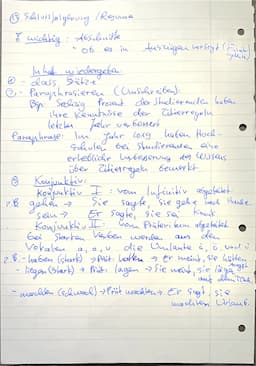 Schlussfolgerung / Resümee
wichtig: Abschnitte
ob es in Auszügen vorliegt
Inhalt wiedergeben
- dass Sätze
- Paraphrasieren (Umschreiben)
Bsp: Sechzig Prozent der Studierenden haben
ihre Kenntnisse der Zitierregeln
letztes Jahr verbessert
Paraphrase: Im Jahr 2019 haben Hoch-
schulen bei Studierenden eine
erhebliche Verbesserung des Wissens
über Zitierregeln bemerkt.
Konjunktiv:
Konjunktiv I: vom Infinitiv abgeleitet
z.B. gehen → Sie sagte, sie gehe nach Hause
sein → Er sagte, sie sei krank
Konjunktiv II: vom Präteritum abgeleitet
bei starken Verben werden aus den
Vokalen a, o, u die Umlaute ä, ö, und ü
z.B. - haben (stark) → Prät. hatten → Er meint, sie hätten
- liegen (stark) → Prät. lagen → Sie meint, sie läge
auf dem
- machen (schwach) → Prät machten → Er sagt, sie
machten Urlaub.